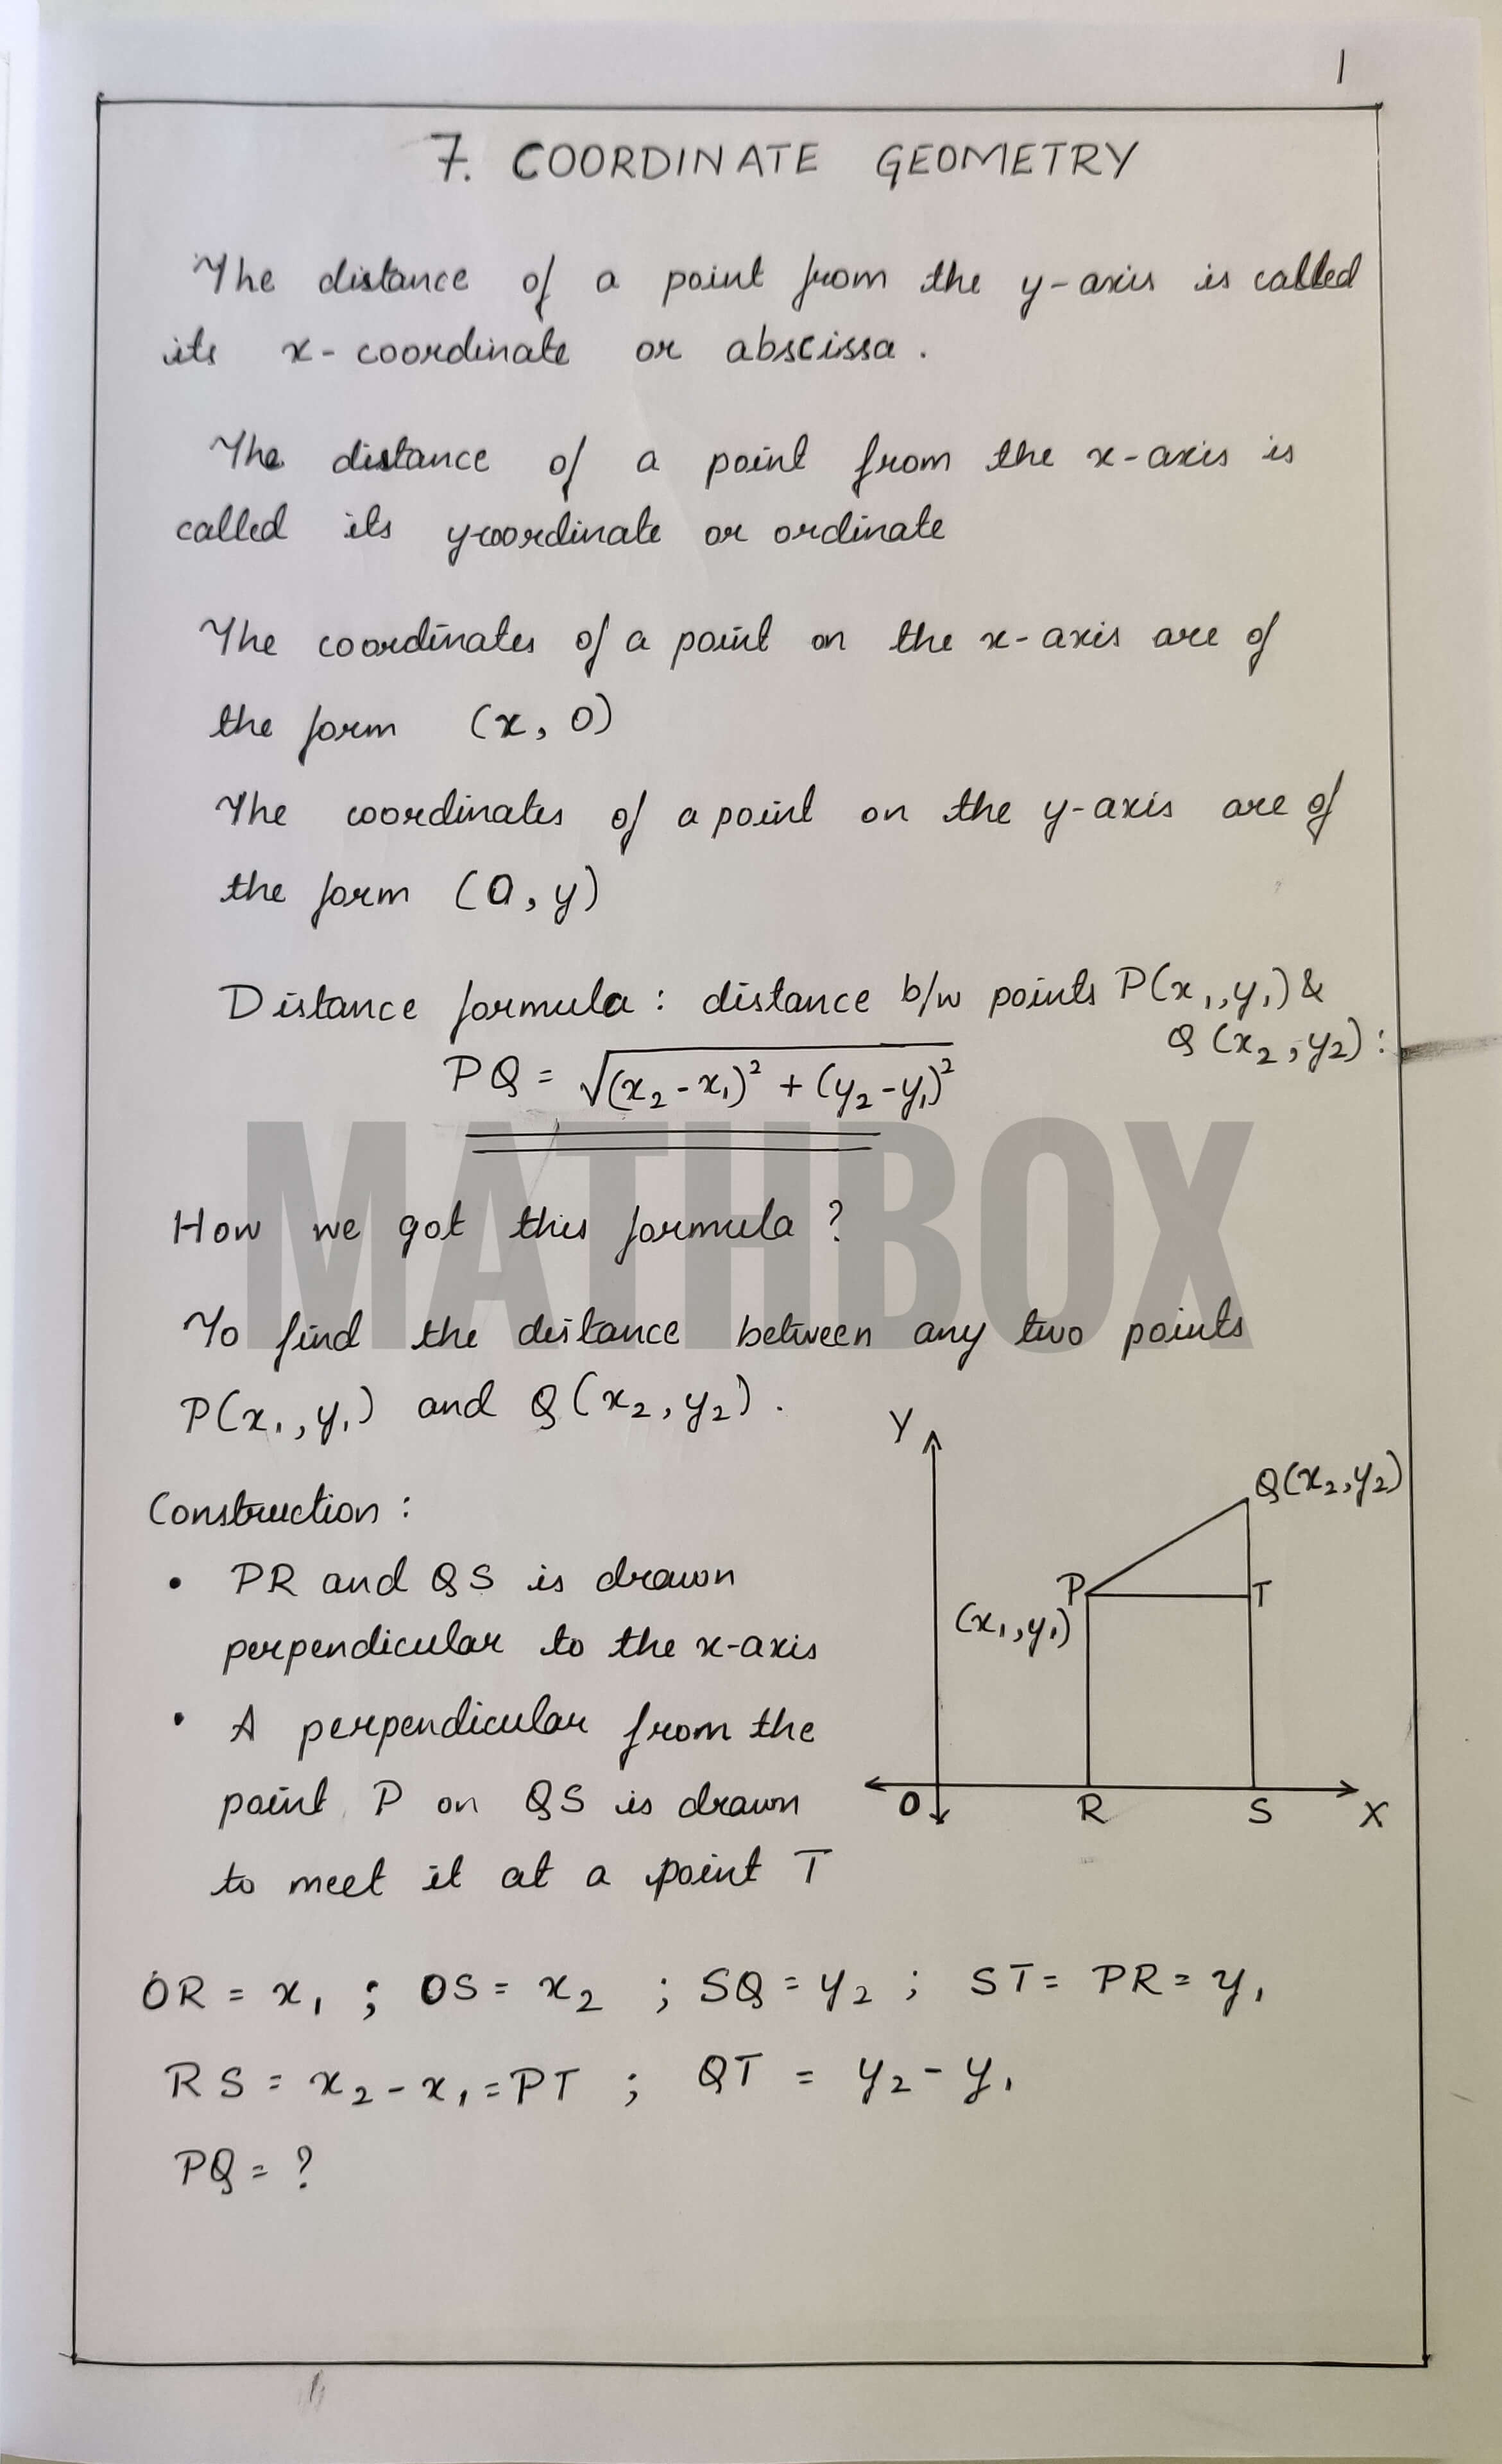 1
7. COORDINATE GEOMETRY
The distance of a point from the y-axis is called
its x-coordinate or abscissa.
The distance of a point from the x-axis is
called its ycoordinate or ordinate
The coordinates of a point on the x-axis are of
the form (x, 0)
The coordinates of a point on the y-axis are of
the form (0, y)
Distance formula: distance b/w points P(x₁, y₁) &
Q(x₂, y₂):
PQ = √(x₂ - x₁)² + (y₂ - y₁)²
MATHBOX
How we got this formula?
To find the distance between any two points
P(x₁, y₁) and Q(x₂, y₂).
Construction:
• PR and QS is drawn
perpendicular to the x-axis
• A perpendicular from the
point P on QS is drawn
to meet it at a point T
Y
Q(x₂, y₂)
P
T
(x₁, y₁)
O
R
S
X
OR = x₁ ; OS = x₂ ; SQ = y₂ ; ST = PR = y₁
RS = x₂ - x₁ = PT ; QT = y₂ - y₁
PQ = ?